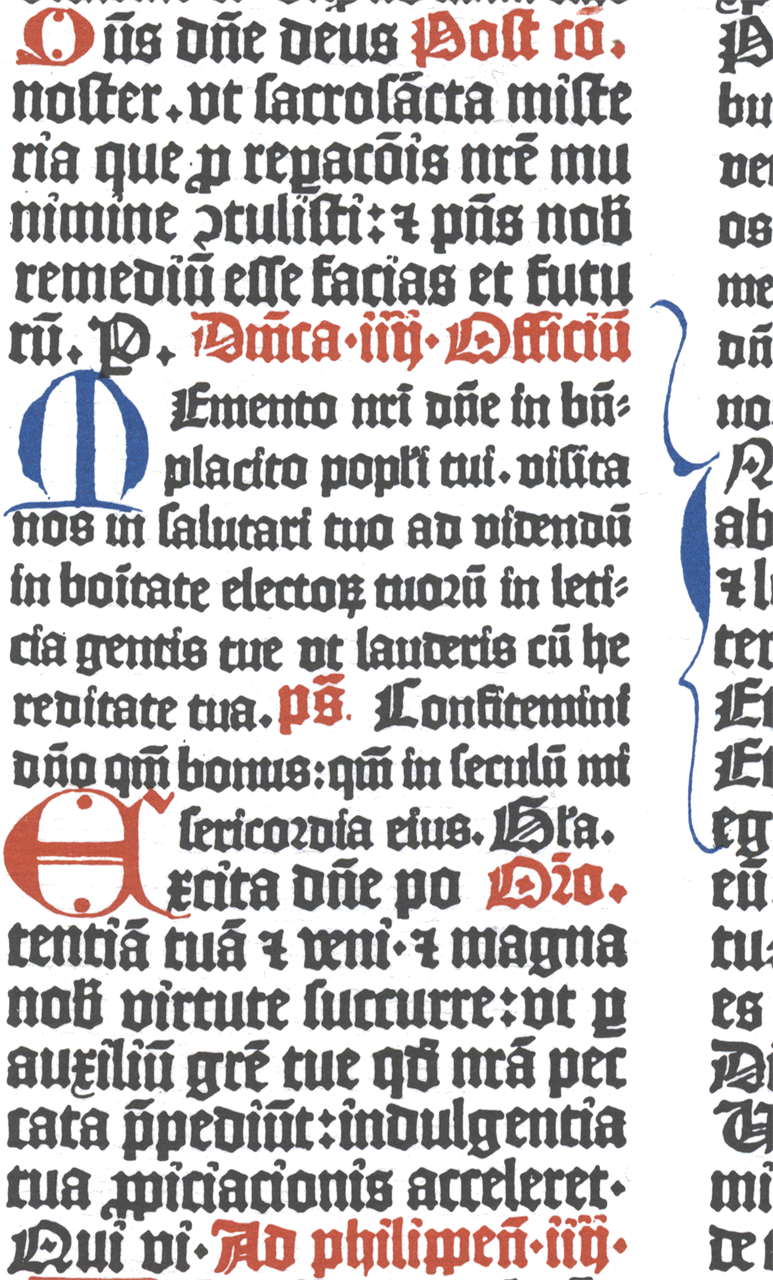 Q̃ns dñe deus Post cõ.
noster. vt sacrosãcta miste
ria que ꝓ reꝑacõis nrẽ mu
nimine ꝯtulisti: ⁊ pñs nob̃
remediũ esse facias et futu
rũ. P. Dñica·iiij·Officiũ
MEmento nr̃i dñe in bñ⸗
placito popl̃i tui. visita
nos in salutari tuo ad videndũ
in boĩtate electoꝝ tuoꝛũ in leti⸗
cia gentis tue vt lauderis cũ he
reditate tua. ps̃. Confitemini
dño qm̃ bonus: qm̃ in seculũ mi
sericoꝛdia eius. Gl̃a.
Excita dñe po Oꝛ̃o.
tentiã tuã ⁊ veni·⁊ magna
nob̃ virtute succurre: vt ꝑ
auxiliũ grẽ tue qđ nrã pec
cata p̃pediũt: indulgentia
tua ꝓpiciacionis acceleret·
Qui vi· Ad philippeñ·iiij·
bu
os
me
dñ
no
ab
⁊
ter
Et
Et
eg
eũ
tu
es
mi